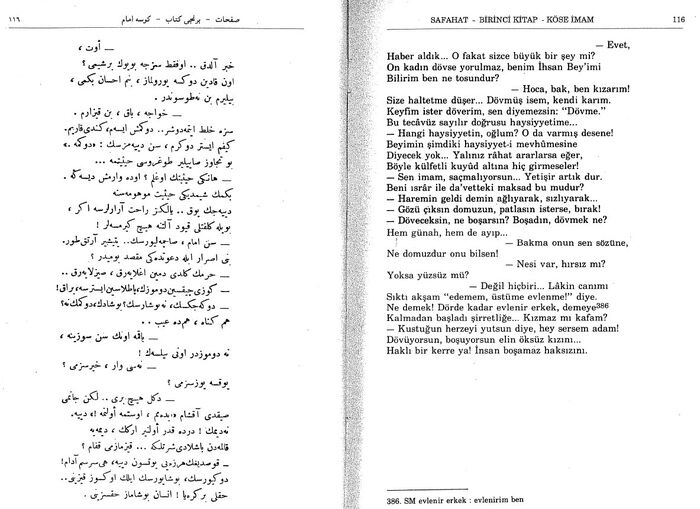 صفحات - برنجی كتاب - كوسه امام
١١٦
— أوت ،
خبر آلدق .. اوفقط سزجه بویوك برشیمی ؟
اون قادین دوكسه یورولماز ، بنم احسان بكمی ،
بیلیرم بن نه‌طوسوندر .
— خواجه ، باق ، بن قیزارم .
سزه خلط ایتمه‌دوشر.. دوكمش ایسه‌م، كندی قاریم.
كیفم ایستر دوكرم ، سن دییه‌مزسك : «دوكمه .»
بو تجاوز صاییلیر طوغروسی حیثیتمه ...
— هانكی حیثیتك اوغلم ؟ اوده وارمش دیسه‌ڭه !
بكمك شیمدیكی حیثیت موهومه‌سنه
دییه‌جك یوق .. یالكز راحت آرارلرسه اكر ،
بویله كلفتلی قیود آلتنه هیچ كیرمه‌سه‌لر !
— سن امام ، صاچمه‌لیورسك.. یتیشیر آرتق‌طور.
بنی اصرار ایله دعوتده‌كی مقصد بومیدر ؟
— حرمك كلدی دمین اغلایه‌رق ، صیزلایه‌رق ..
— كوزی چیقسین‌دوموزك، پاطلاسین ایسترسه، براق!
— دوكه‌جكسك، نه‌بوشارسك؟ بوشادك، دوكمك نه؟
هم كناه ، هم‌ده عیب ..
— باقمه اونك سن سوزینه ،
نه دوموزدر اونی بیلسه‌ك !
— نه‌سی وار ، خیرسزمی ؟
یوقسه یوزسزمی ؟
— دكل هیچ بری .. لكن جانمی
صیقدی آقشام «ایده‌مم ، اوستمه أولنمه !» دییه.
نه‌دیمك ! درده قدر أولنیر اركك ، دیمه‌یه
قالمه‌دن باشلادی شرتلكه ... قیزمازمی قفام ؟
— قوصدیغك هرزه‌یی یوتسون دییه، هی‌سرسم آدام!
دوكیورسك ، بوشایورسك ایلك اوكسوز قیزینی..
حقلی بركره‌یا ! انسان بوشاماز حقسزینی .
SAFAHAT – BİRİNCİ KİTAP - KÖSE İMAM
116
— Evet,
Haber aldık... O fakat sizce büyük bir şey mi?
On kadın dövse yorulmaz, benim İhsan Bey'imi
Bilirim ben ne tosundur?
— Hoca, bak, ben kızarım!
Size haltetme düşer... Dövmüş isem, kendi karım.
Keyfim ister döverim, sen diyemezsin: "Dövme."
Bu tecâvüz sayılır doğrusu haysiyyetime...
— Hangi haysiyyetin, oğlum? O da varmış desene!
Beyimin şimdiki haysiyyet-i mevhûmesine
Diyecek yok... Yalnız râhat ararlarsa eğer,
Böyle külfetli kuyûd altına hiç girmeseler!
— Sen imam, saçmalıyorsun... Yetişir artık dur.
Beni ısrâr ile da'vetteki maksad bu mudur?
— Haremin geldi demin ağlıyarak, sızlıyarak...
— Gözü çıksın domuzun, patlasın isterse, bırak!
— Döveceksin, ne boşarsın? Boşadın, dövmek ne?
Hem günah, hem de ayıp...
— Bakma onun sen sözüne,
Ne domuzdur onu bilsen!
— Nesi var, hırsız mı?
Yoksa yüzsüz mü?
— Değil hiçbiri... Lâkin canımı
Sıktı akşam "edemem, üstüme evlenme!" diye.
Ne demek! Dörde kadar evlenir erkek, demeye386
Kalmadan başladı şirretliğe... Kızmaz mı kafam?
— Kustuğun herzeyi yutsun diye, hey sersem adam!
Dövüyorsun, boşuyorsun elin öksüz kızını...
Haklı bir kerre ya! İnsan boşamaz haksızını.
386. SM evlenir erkek : evlenirim ben